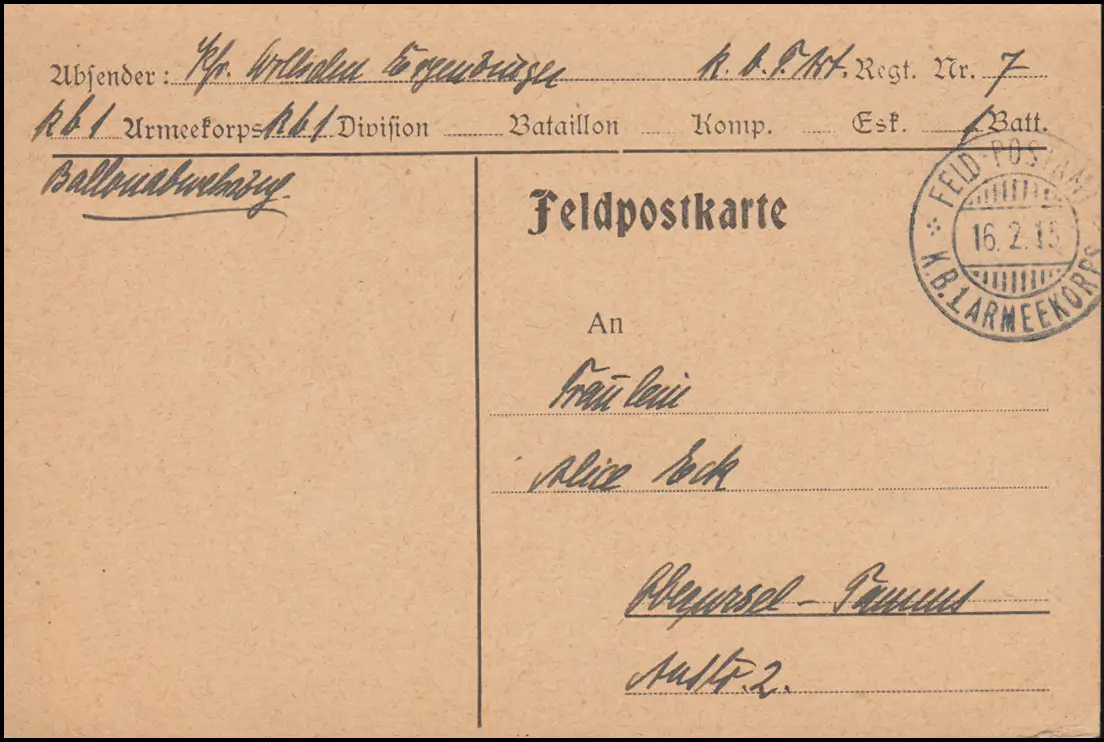 Absender: Wilhelm k. b. F. Art. Regt. Nr. 7
k b 1 Armeekorps k b 1 Division Bataillon Komp. Esk. 1 Batt.
Ballonabwehrzug.
FELD-POSTAMT
16. 2. 15.
K.B.1 ARMEEKORPS
Feldpostkarte
An
Fräulein
Alice Eck
Oberursel - Taunus